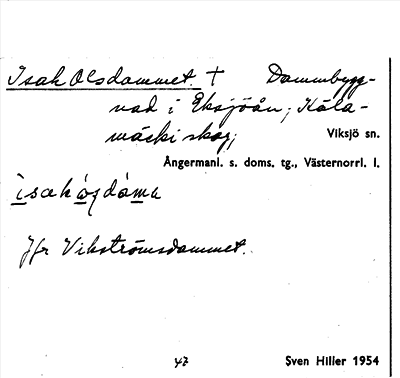 Isak Olsdammet. † Dammbygg-
nad i Eksjöån; Kåla-
mäski skog; Viksjö sn.
Ångermanl. s. doms. tg., Västernorrl. l.
ìsakóṣdáma
Jfr Vikströmsdammet.
47 Sven Hiller 1954